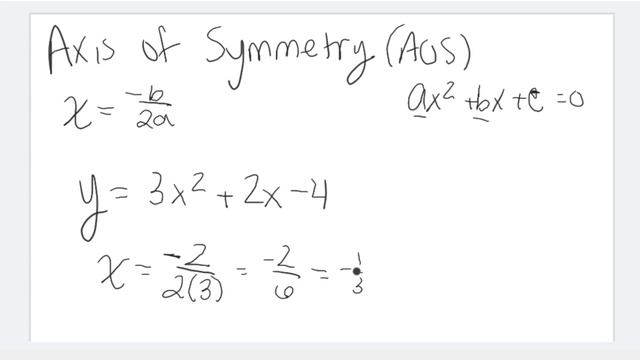 Axis of Symmetry (AOS)
x = -b/2a
ax² + bx + c = 0
y = 3x² + 2x - 4
x = -2/2(3) = -2/6 = -1/3